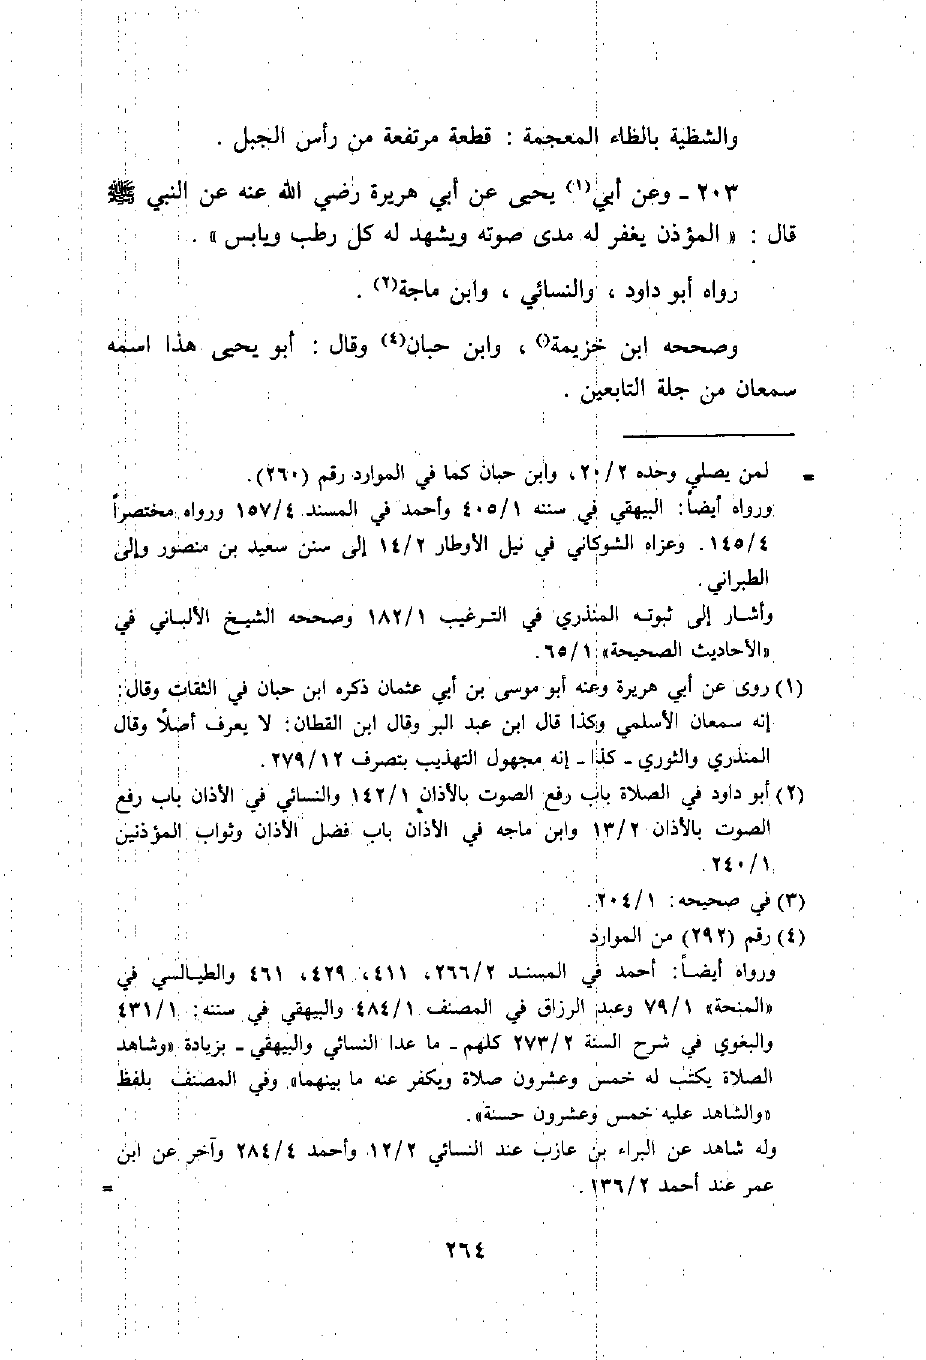 والشظية بالظاء المعجمة : قطعة مرتفعة من رأس الجبل .
٢٠٣ ـ وعن أبي(١) يحيى عن أبي هريرة رضي الله عنه عن النبي ﷺ
قال : « المؤذن يغفر له مدى صوته ويشهد له كل رطب ويابس » .
رواه أبو داود ، والنسائي ، وابن ماجة(٢) .
وصححه ابن خزيمة ، وابن حبان(٤) وقال : أبو يحيى هذا اسمه
سمعان من جلة التابعين .
= لمن يصلي وحده ٢٠/٢، وابن حبان كما في الموارد رقم (٢٦٠).
ورواه أيضاً: البيهقي في سننه ٤٠٥/١ وأحمد في المسند ١٥٧/٤ ورواه مختصراً
١٤٥/٤. وعزاه الشوكاني في نيل الأوطار ١٤/٢ إلى سنن سعيد بن منصور وإلى
الطبراني.
وأشار إلى ثبوته المنذري في الترغيب ١٨٢/١ وصححه الشيخ الألباني في
«الأحاديث الصحيحة» ٦٥/١.
(١) روى عن أبي هريرة وعنه أبو موسى بن أبي عثمان ذكره ابن حبان في الثقات وقال:
إنه سمعان الأسلمي وكذا قال ابن عبد البر وقال ابن القطان: لا يعرف أصلاً وقال
المنذري والثوري ـ كذا ـ إنه مجهول التهذيب بتصرف ٢٧٩/١٢.
(٢) أبو داود في الصلاة باب رفع الصوت بالأذان ١٤٢/١ والنسائي في الأذان باب رفع
الصوت بالأذان ١٣/٢ وابن ماجه في الأذان باب فضل الأذان وثواب المؤذنين
٢٤٠/١.
(٣) في صحيحه: ٢٠٤/١.
(٤) رقم (٢٩٢) من الموارد
ورواه أيضاً: أحمد في المسند ٢٦٦/٢، ٤١١، ٤٢٩، ٤٦١ والطيالسي في
«المنحة» ٧٩/١ وعبد الرزاق في المصنف ٤٨٤/١ والبيهقي في سننه: ٤٣١/١
والبغوي في شرح السنة ٢٧٣/٢ كلهم ـ ما عدا النسائي والبيهقي ـ بزيادة «وشاهد
الصلاة يكتب له خمس وعشرون صلاة ويكفر عنه ما بينهما» وفي المصنف بلفظ
«والشاهد عليه خمس وعشرون حسنة».
وله شاهد عن البراء بن عازب عند النسائي ١٢/٢ وأحمد ٢٨٤/٤ وآخر عن ابن
عمر عند أحمد ١٣٦/٢. =
٢٦٤